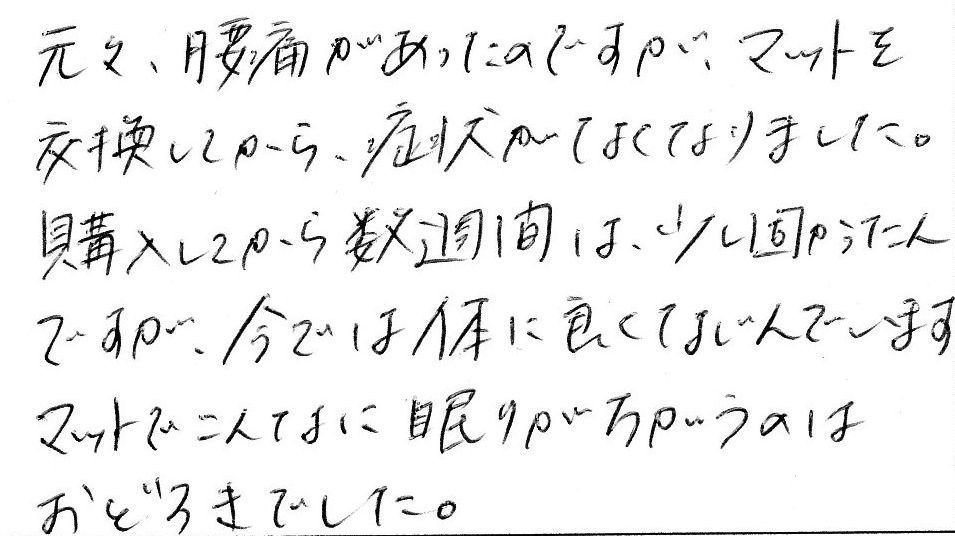 元々、腰痛があったのですが、マットを
交換してから、症状がなくなりました。
購入してから数週間は、少し固かったん
ですが、今では体に良くなじんでいます
マットでこんなに眠りがちがうのは
おどろきでした。